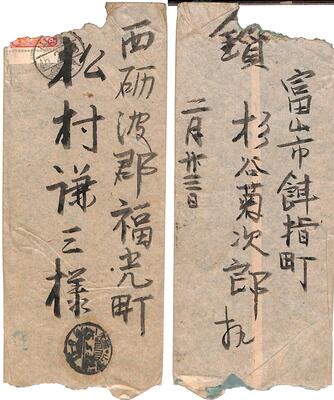 西砺波郡福光町
松村謙三様
富山市餌指町
杉谷菊次郎
二月廿三日
鎖